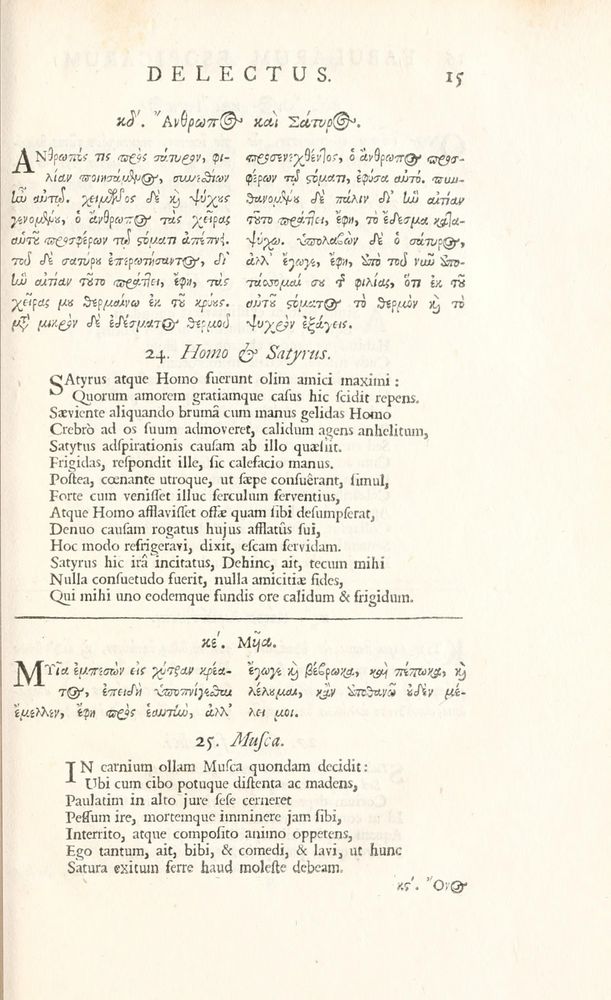 DELECTUS. 15
κδʹ. Ἄνθρωπος καὶ Σάτυρος.
ἌΝθρωπός τις πρὸς σάτυρον, φι-
λίαν ποιησάμενος, συνεσθίων
ἦν αὐτῷ. χειμῶνος δὲ κ̀ ψύχους
γενομένου, ὁ ἄνθρωπος τὰς χεῖρας
αὑτοῦ προσφέρων τῷ στόματι ἀπέπνει.
τοῦ δὲ σατύρου ἐπερωτήσαντος, δι'
ἣν αἰτίαν τοῦτο πράττει, ἔφη, τὰς
χεῖράς μου θερμαίνω ἐκ τοῦ κρύους.
μετὰ μικρὸν δὲ ἐδέσματος θερμοῦ
προσενεχθέντος, ὁ ἄνθρωπος προσ-
φέρων τῷ στόματι, ἐφύσα αὐτό. πυν-
θανομένου δὲ πάλιν δι' ἣν αἰτίαν
τοῦτο πράττει, ἔφη, τὸ ἔδεσμα κατα-
ψύχω. ὑπολαβὼν δὲ ὁ σάτυρος,
ἀλλ' ἔγωγε, ἔφη, ἀπὸ τοῦ νῦν ἀπο-
τάσσομαί σου τῆς φιλίας, ὅτι ἐκ τοῦ
αὐτοῦ στόματος τὸ θερμὸν κ̀ τὸ
ψυχρὸν ἐξάγεις.
24. Homo & Satyrus.
SAtyrus atque Homo fuerunt olim amici maximi:
Quorum amorem gratiamque casus hic scidit repens.
Sæviente aliquando brumâ cum manus gelidas Homo
Crebrò ad os suum admoveret, calidum agens anhelitum,
Satyrus adspirationis causam ab illo quæsiit.
Frigidas, respondit ille, sic calefacio manus.
Postea, cœnante utroque, ut sæpe consuêrant, simul,
Forte cum venisset illuc ferculum ferventius,
Atque Homo afflavisset offæ quam sibi desumpserat,
Denuo causam rogatus hujus afflatûs sui,
Hoc modo refrigeravi, dixit, escam fervidam.
Satyrus hic irâ incitatus, Dehinc, ait, tecum mihi
Nulla consuetudo fuerit, nulla amicitiæ fides,
Qui mihi uno eodemque fundis ore calidum & frigidum.
κεʹ. Μῦα.
ΜΥῖα ἐμπεσὼν εἰς χύτραν κρέα-
τος, ἐπειδὴ ὑποπνίγεσθαι
ἔμελλεν, ἔφη πρὸς ἑαυτὴν, ἀλλ'
ἔγωγε κ̀ βέβρωκα, καὶ πέπωκα, κ̀
λέλουμαι, κἂν ἀποθανῶ οὐδὲν μέ-
λει μοι.
25. Musca.
IN carnium ollam Musca quondam decidit:
Ubi cum cibo potuque distenta ac madens,
Paulatim in alto jure sese cerneret
Pessum ire, mortemque imminere jam sibi,
Interrito, atque composito animo oppetens,
Ego tantum, ait, bibi, & comedi, & lavi, ut hunc
Satura exitum ferre haud moleste debeam.
κςʹ. Ὄνος